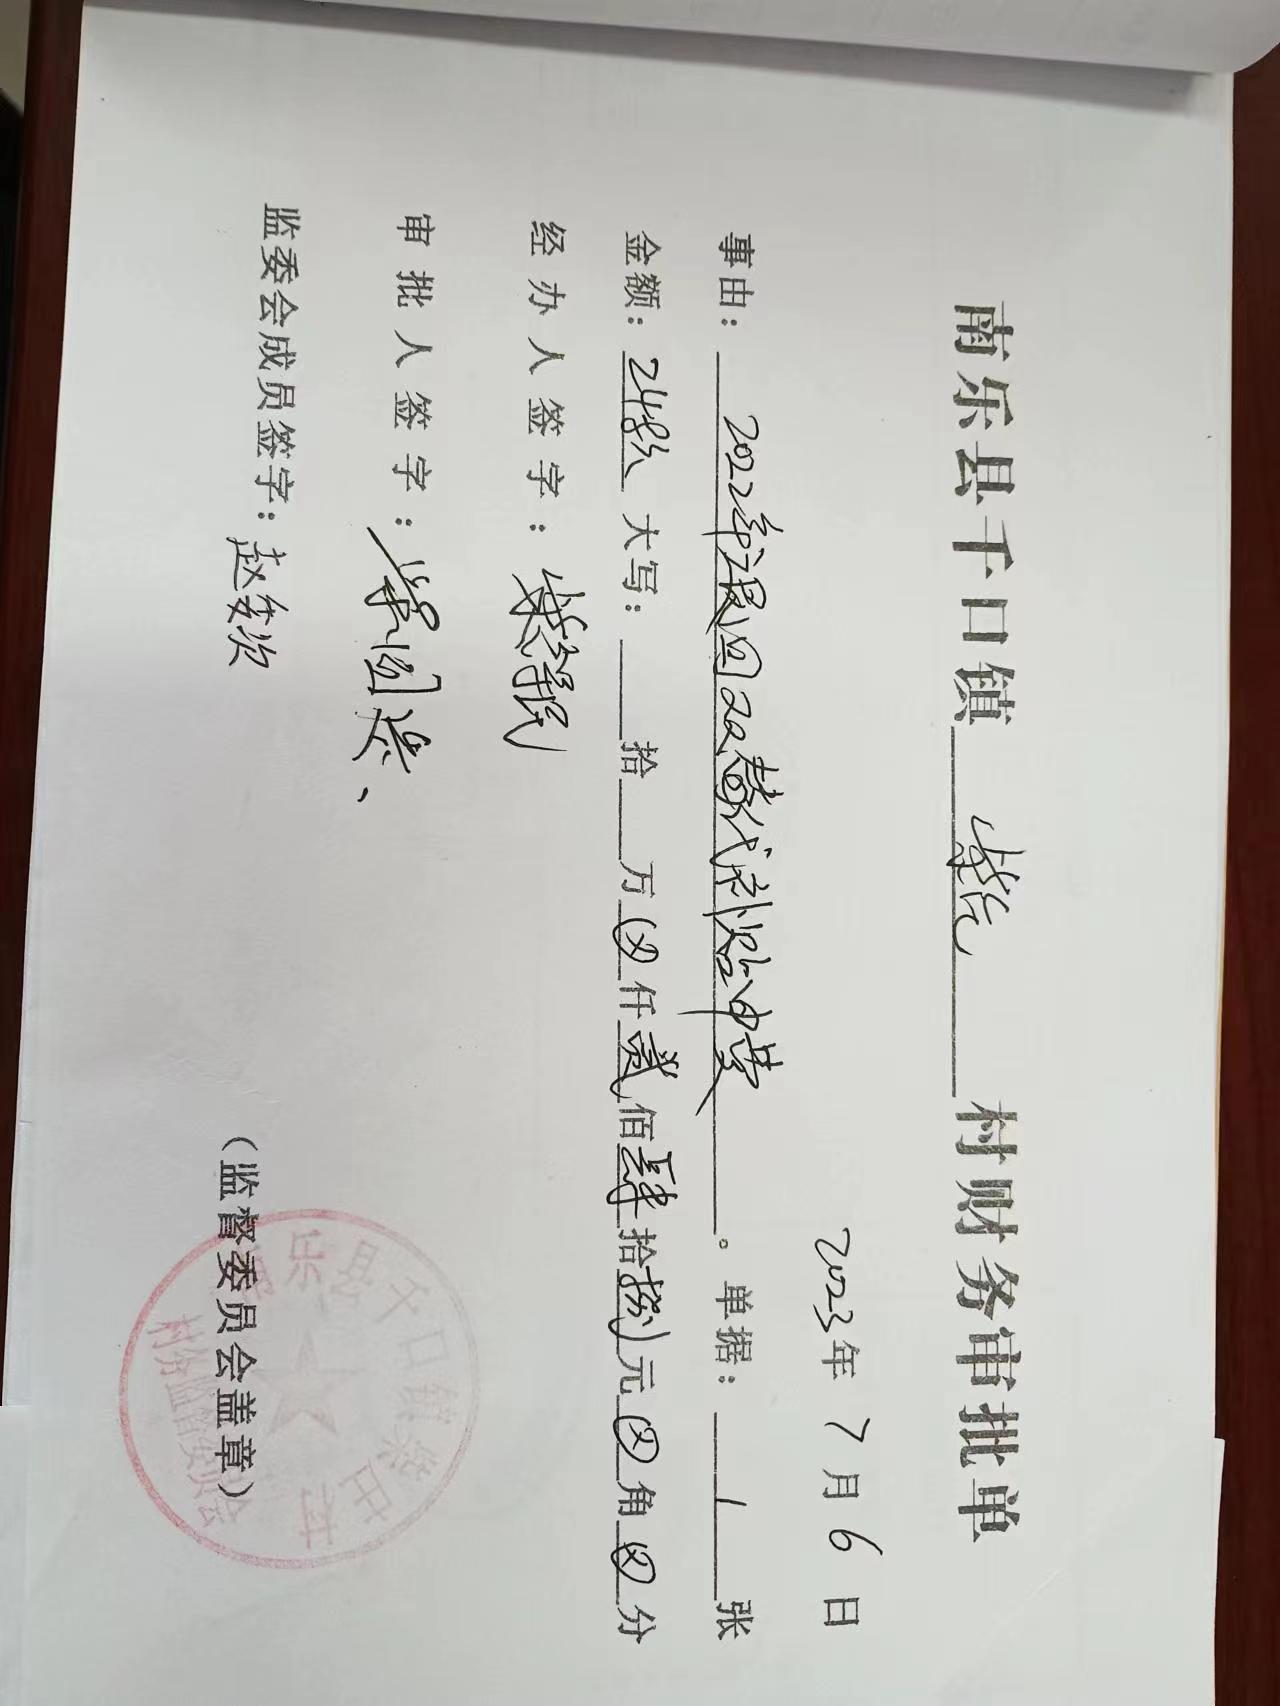 南乐县千口镇 村财务审批单
2023年7月6日
事由：2022年退回双替代补贴电费。单据：1张
金额：248元 大写： 拾 万⊗仟贰佰肆拾捌元⊗角⊗分
经办人签字：
审批人签字：
监委会成员签字：赵
（监督委员会盖章）
南乐县千口镇 村
村务监督委员会